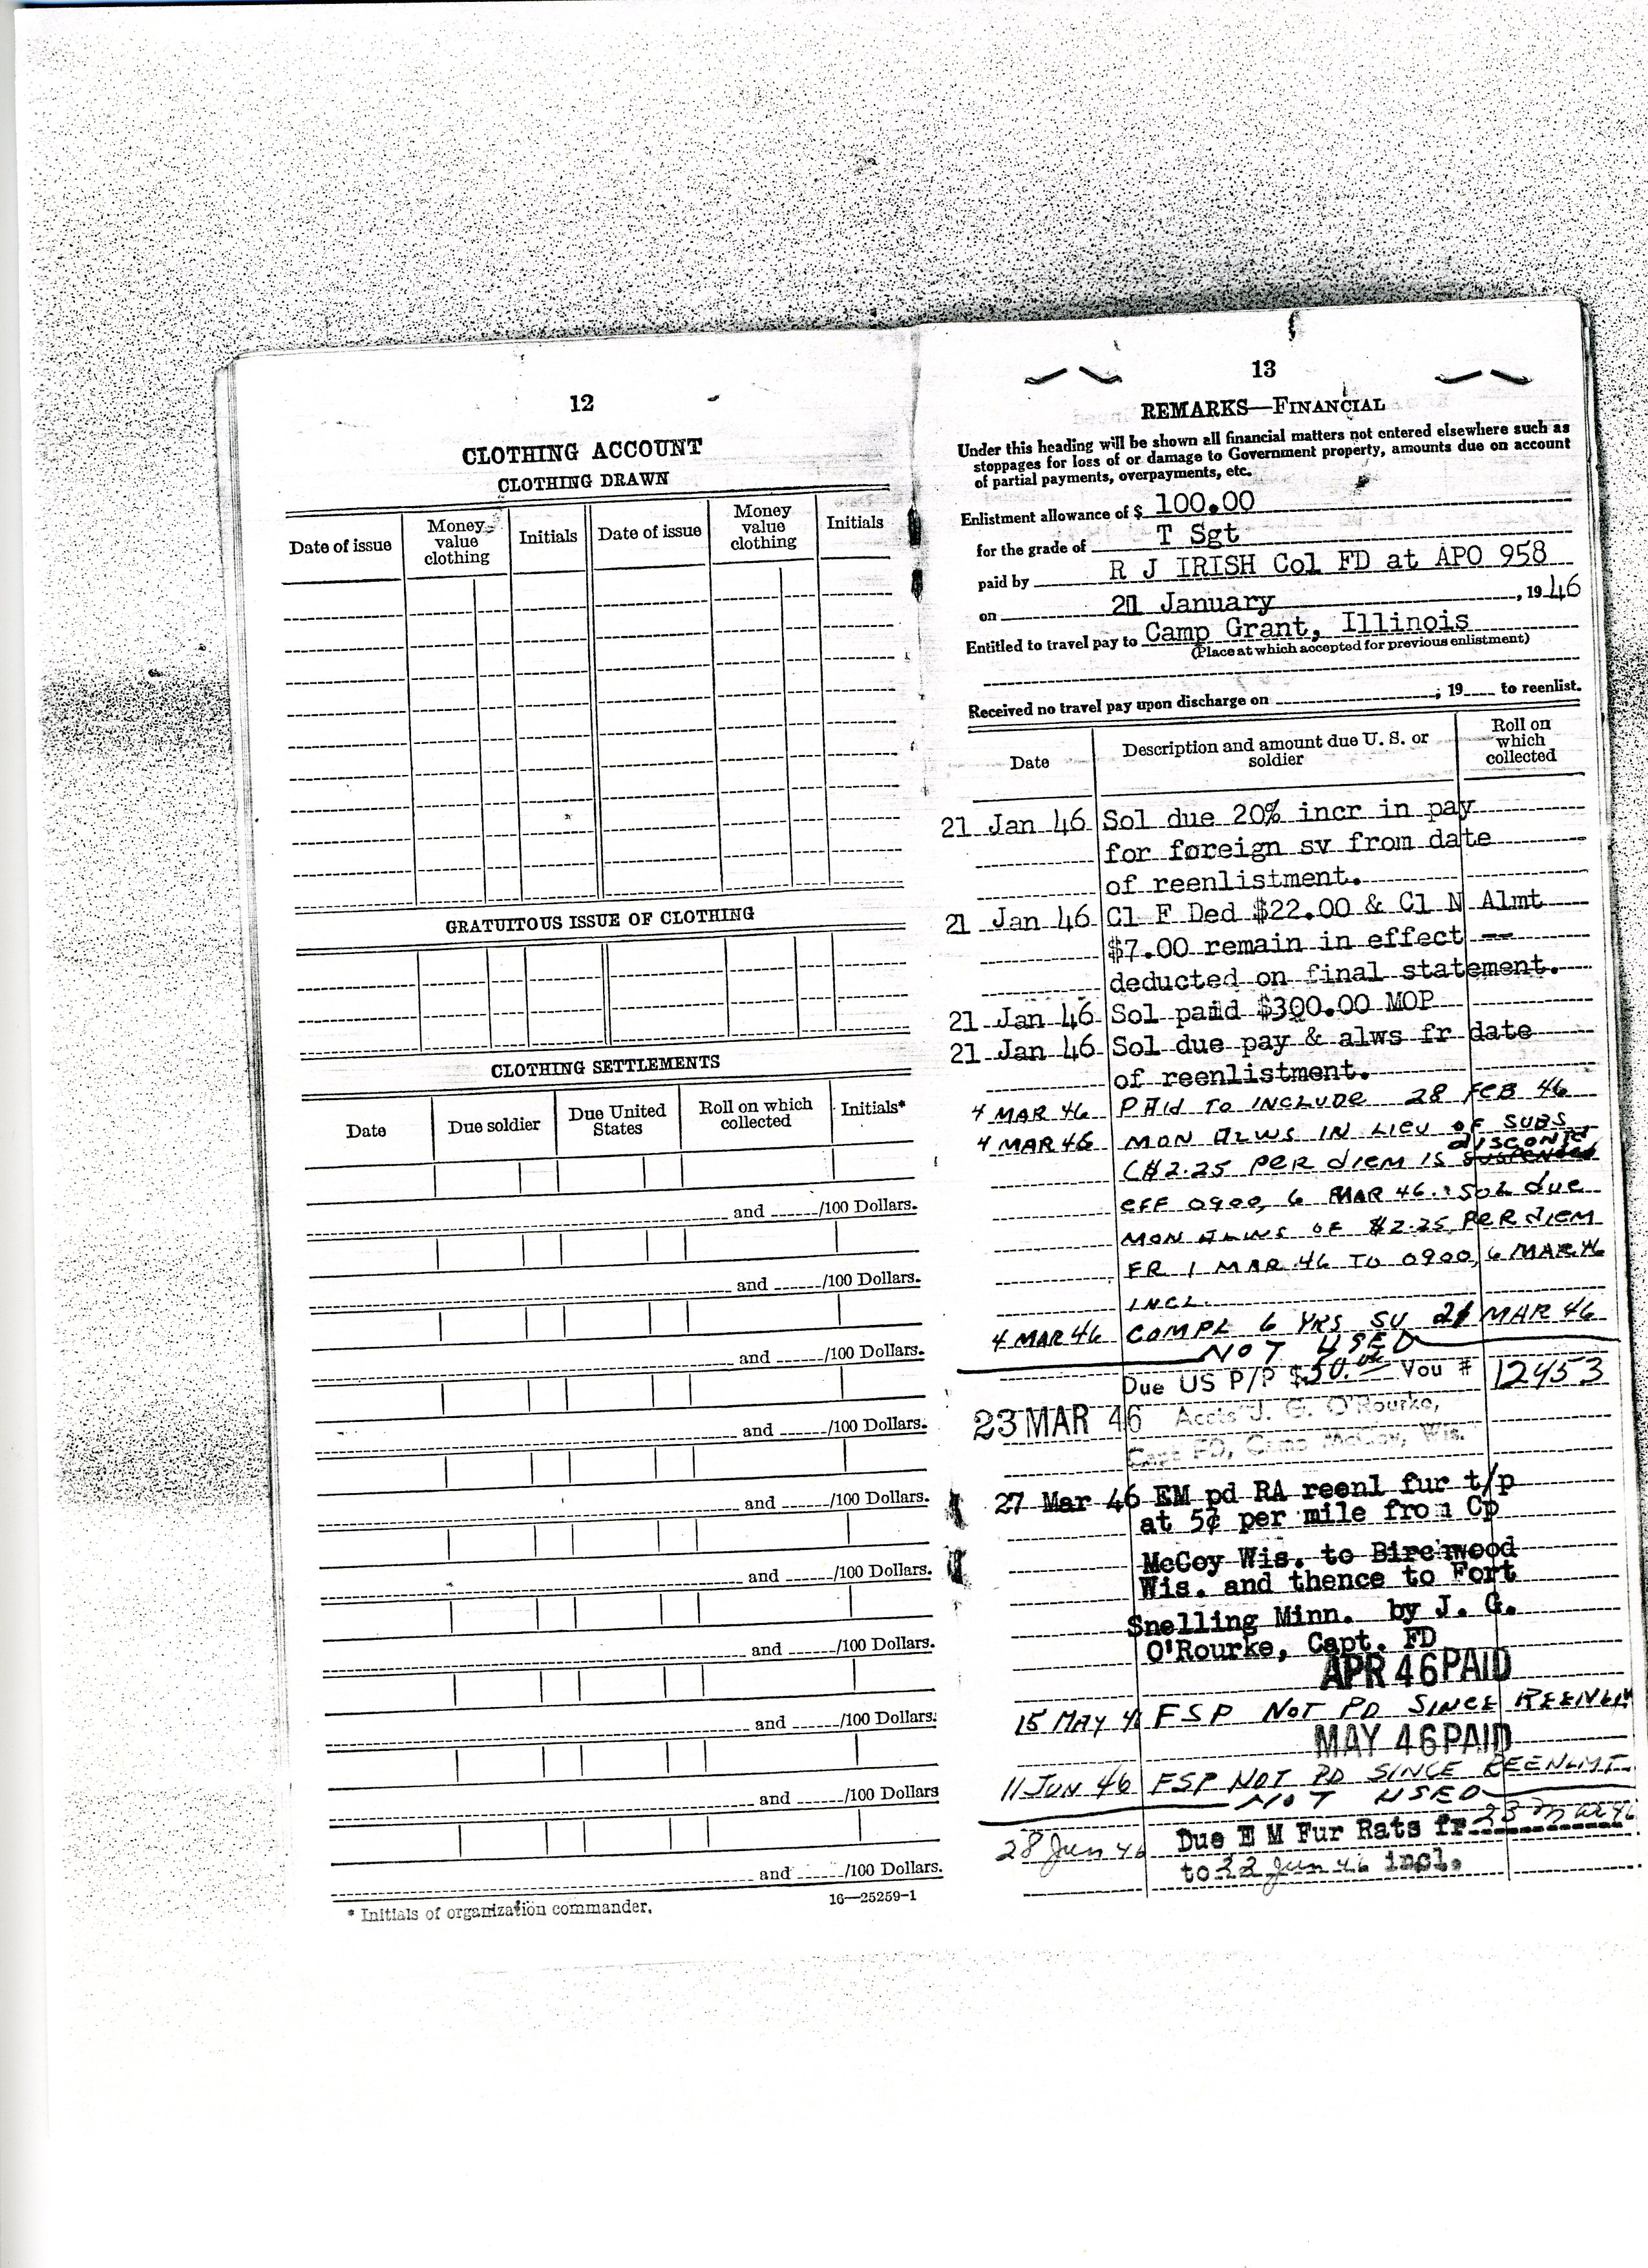 12
CLOTHING ACCOUNT
CLOTHING DRAWN
Date of issue Money value clothing Initials Date of issue Money value clothing Initials
GRATUITOUS ISSUE OF CLOTHING
CLOTHING SETTLEMENTS
Date Due soldier Due United States Roll on which collected Initials*
and ______/100 Dollars.
and ______/100 Dollars.
and ______/100 Dollars.
and ______/100 Dollars.
and ______/100 Dollars.
and ______/100 Dollars.
and ______/100 Dollars.
and ______/100 Dollars.
and ______/100 Dollars
and ______/100 Dollars.
* Initials of organization commander.
16—25259-1
13
REMARKS—FINANCIAL
Under this heading will be shown all financial matters not entered elsewhere such as
stoppages for loss of or damage to Government property, amounts due on account
of partial payments, overpayments, etc.
Enlistment allowance of $ 100.00
for the grade of T Sgt
paid by R J IRISH Col FD at APO 958
on 21 January, 1946
Entitled to travel pay to Camp Grant, Illinois
(Place at which accepted for previous enlistment)
Received no travel pay upon discharge on ____________, 19____ to reenlist.
Date Description and amount due U. S. or soldier Roll on which collected
21 Jan 46 Sol due 20% incr in pay
for foreign sv from date
of reenlistment.
21 Jan 46 Cl F Ded $22.00 & Cl N Almt
$7.00 remain in effect --
deducted on final statement.
21 Jan 46 Sol paid $300.00 MOP
21 Jan 46 Sol due pay & alws fr date
of reenlistment.
4 MAR 46 PAID TO INCLUDE 28 FEB 46
4 MAR 46 MON ALWS IN LIEU OF SUBS
discontd
C$2.25 PER DIEM IS suspended
EFF 0900, 6 MAR 46. SOL DUE
MON ALWS OF $2.25 PER DIEM
FR 1 MAR 46 TO 0900, 6 MAR 46
INCL.
4 MAR 46 COMPL 6 YRS SV 21 MAR 46
NOT USED
Due US P/P $50.00 Vou # 12453
23 MAR 46 Accts J. G. O'Rourke,
Capt FD, Camp McCoy, Wis.
27 Mar 46 EM pd RA reenl fur t/p
at 5¢ per mile from Cp
McCoy Wis. to Birchwood
Wis. and thence to Fort
Snelling Minn. by J. G.
O'Rourke, Capt. FD
APR 46 PAID
15 MAY 46 FSP NOT PD SINCE REENLM
MAY 46 PAID
11 JUN 46 FSP NOT PD SINCE REENLMT
NOT USED
28 Jun 46 Due E M Fur Rats fr 23 Mar 46
to 22 Jun 46 incl.